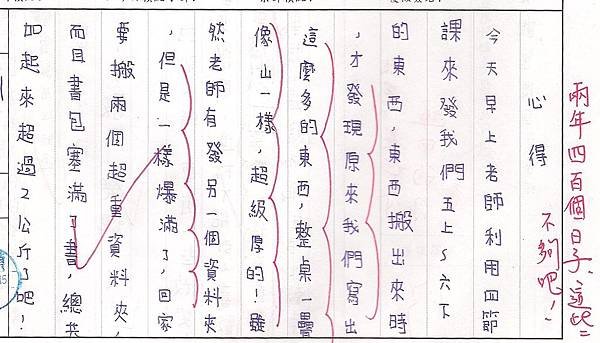 兩年四百個日子、這些
不夠吧！
心得
今天早上老師利用四節
課來發我們五上~六下
的東西,東西搬出來時
,才發現原來我們寫出
這麼多的東西,整桌一疊
像山一樣,超級厚的!雖
然老師有發另一個資料夾
,但是一樣爆滿了,回家
要搬兩個超重資料夾,
而且書包塞滿了書,總共
加起來超過2公斤了吧!